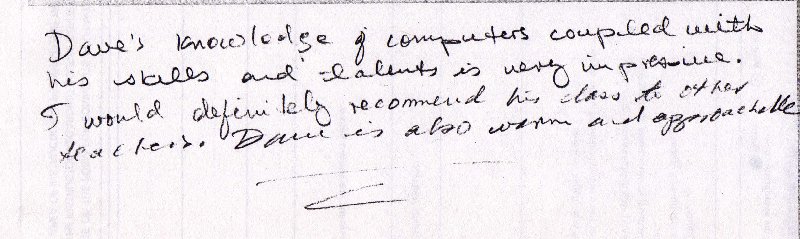 Dave's knowledge of computers coupled with
his skills and talents is very impressive.
I would definitely recommend his class to other
teachers. Dave is also warm and approachable